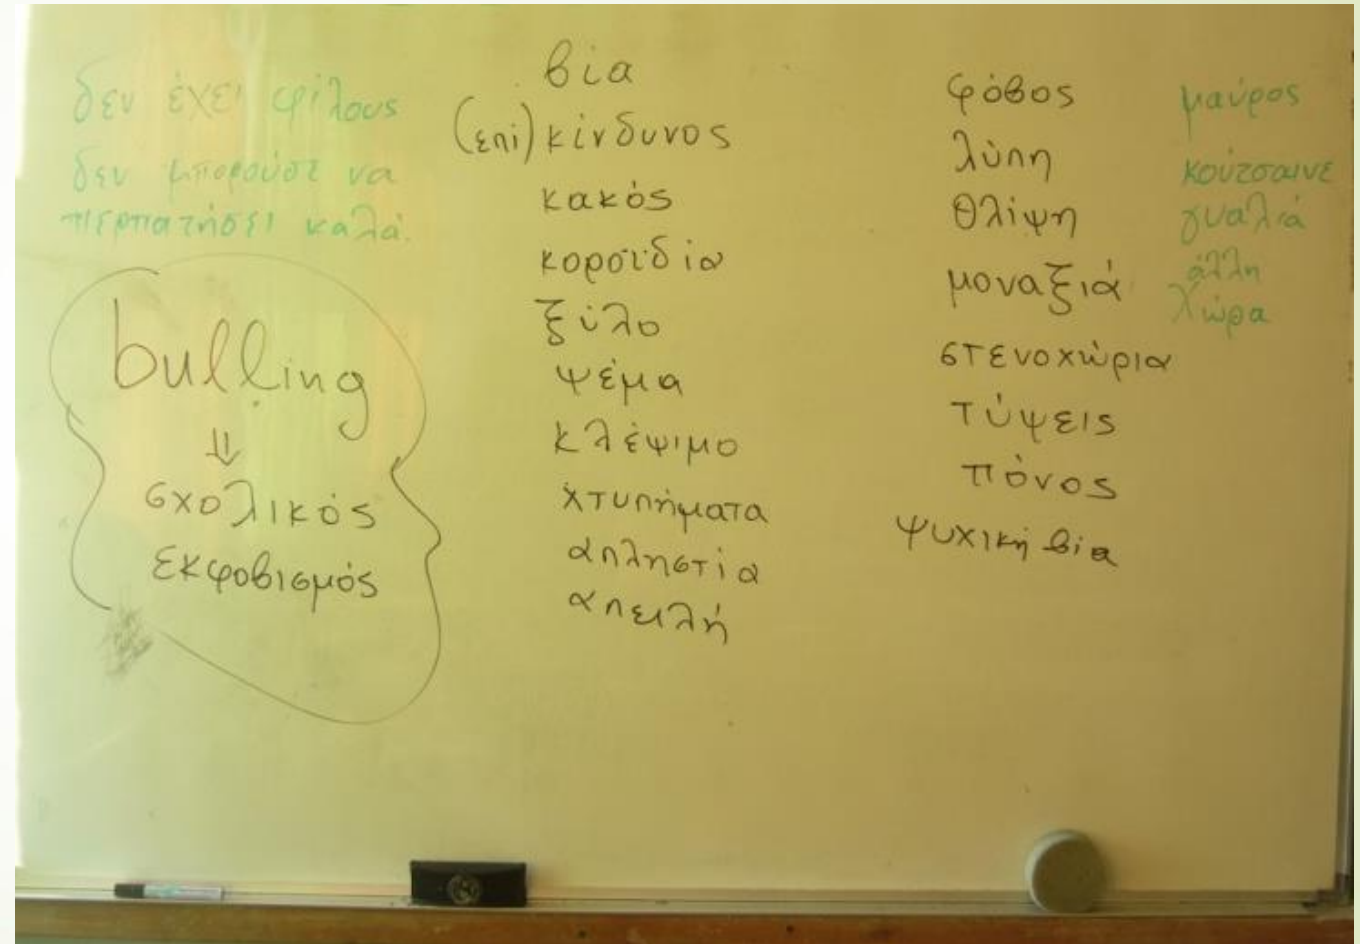 δεν έχει φίλους
δεν μπορούσε να
περπατήσει καλά.
bulling
⇓
σχολικός
εκφοβισμός
βία
(επι) κίνδυνος
κακός
κοροϊδία
ξύλο
ψέμα
κλέψιμο
χτυπήματα
απληστία
απειλή
φόβος
λύπη
θλίψη
μοναξιά
στενοχώρια
τύψεις
πόνος
ψυχική βία
μαύρος
κούτσαινε
γυαλιά
άλλη
χώρα